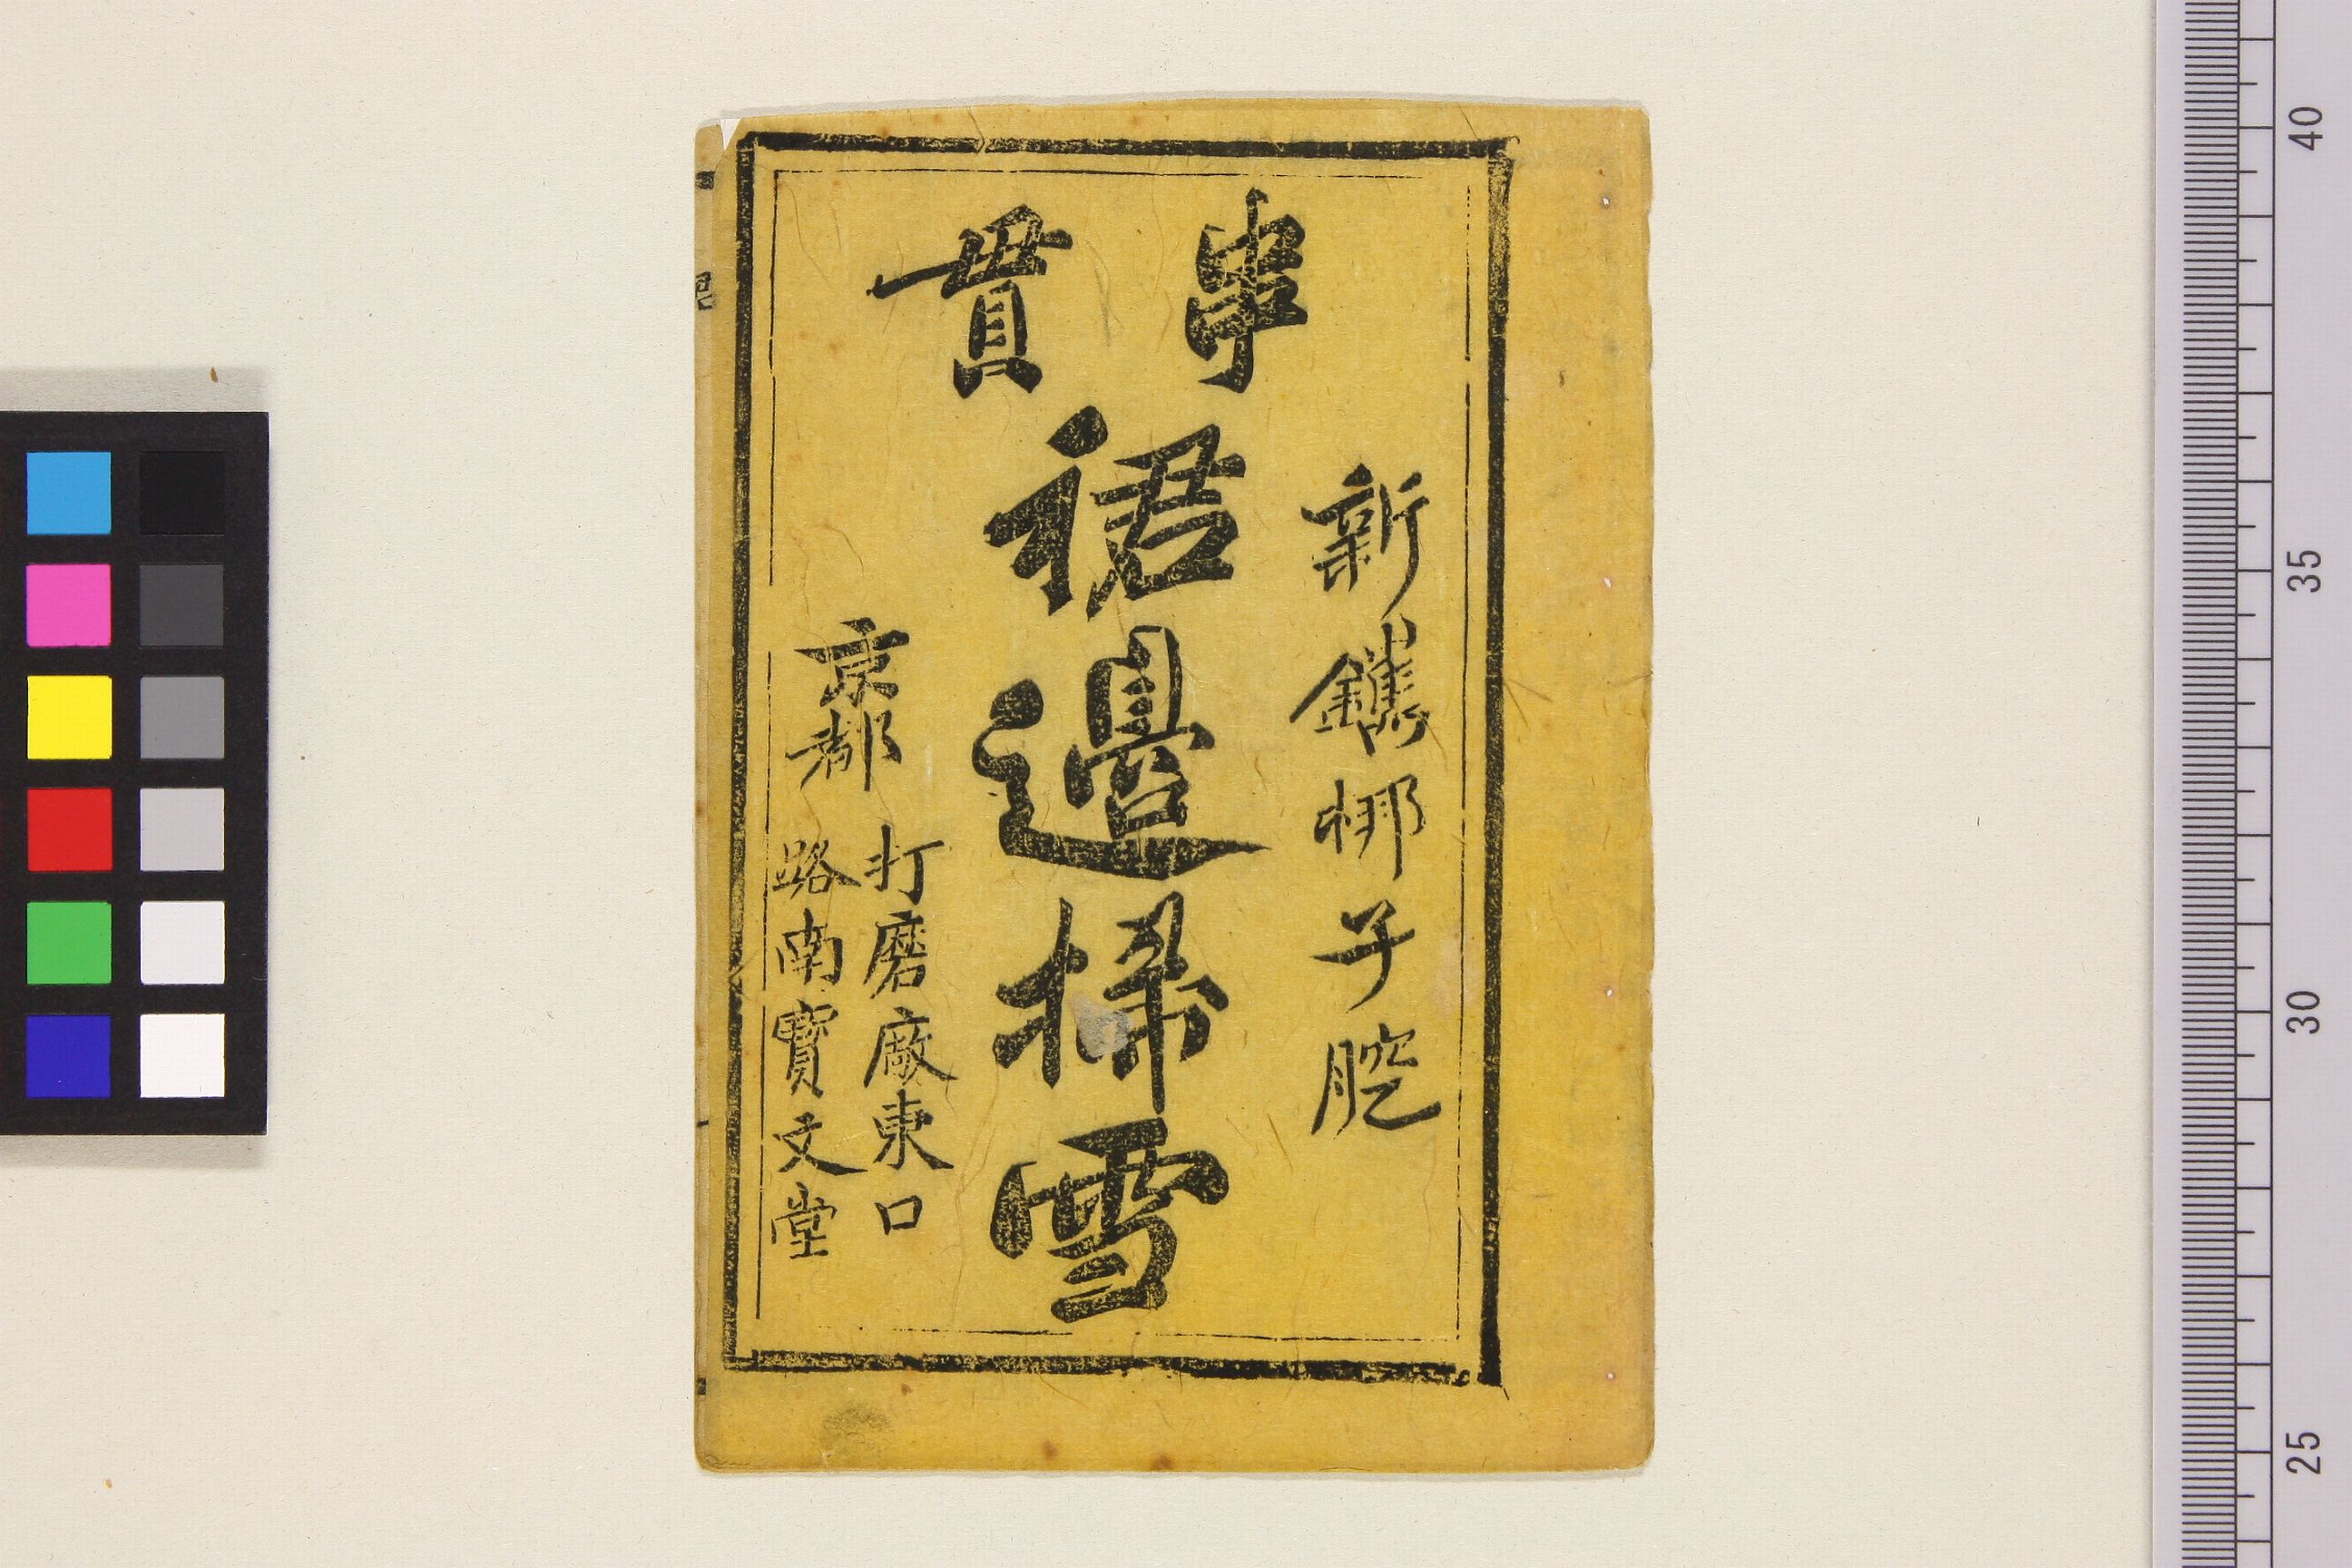 串貫
新鐫梆子腔
裙邊掃雪
京都
打磨廠東口
路南寶文堂
40
35
30
25